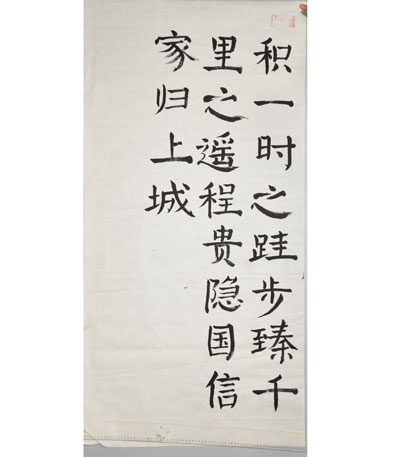 积一时之跬步臻千
里之遥程贵隐国信
家归上城